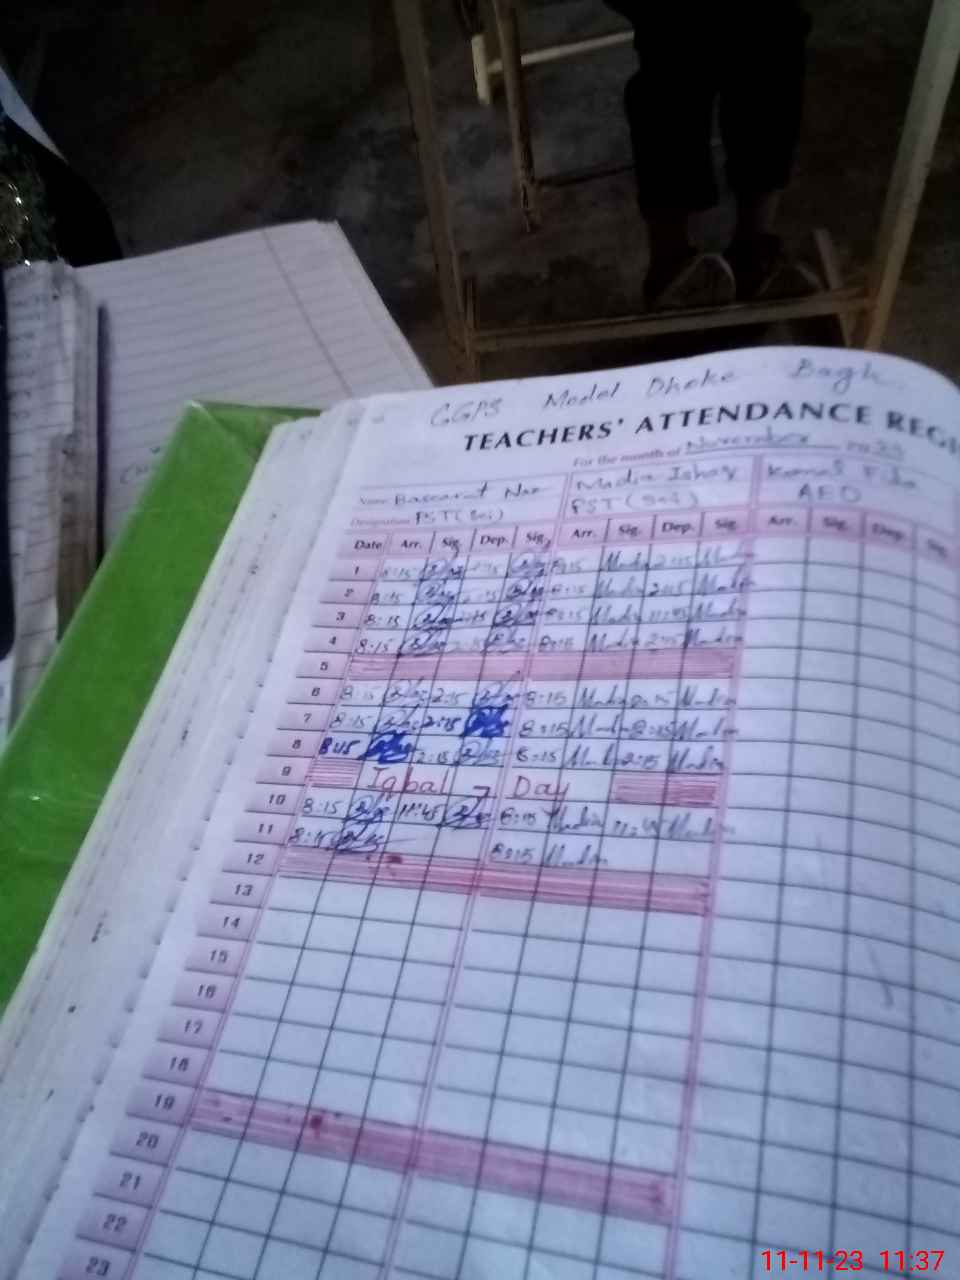 GGPS Model Dhoke Bagh
TEACHERS' ATTENDANCE REGI
For the month of November 2023
Name Basearat Naz Madia Ishaq Komal
Designation PST (Sci) PST (Sci) AEO
Date Arr. Sig. Dep. Sig. Arr. Sig. Dep. Sig. Arr. Sig. Dep. Sig.
1 8:15 2:15 8:15 Madia 2:15 Madia
2 8:15 2:15 8:15 Madia 2:15 Madia
3 8:15 8:15 Madia 11:45 Madia
4 8:15 2:15 8:15 Madia 2:15 Madia
5
6 8:15 2:15 8:15 Madia 2:15 Madia
7 8:15 2:15 8:15 Madia 2:15 Madia
8 8:15 2:15 8:15 Madia 2:15 Madia
9 Iqbal Day
10 8:15 11:45 8:15 Madia 11:45 Madia
11 8:15 8:15 Madia
12
13
14
15
16
17
18
19
20
21
22
23
11-11-23 11:37